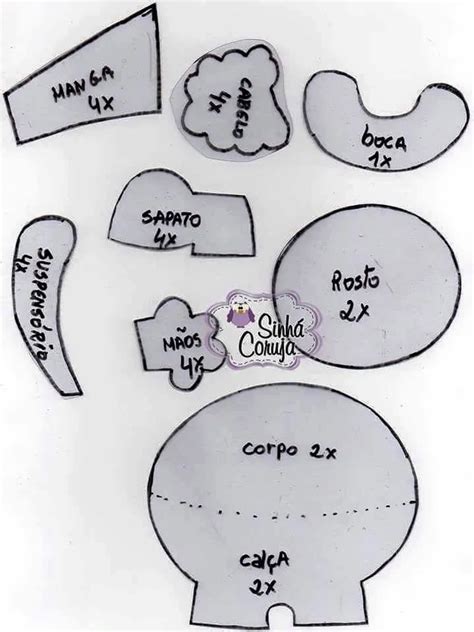 MANGA
4X
CABELO
4X
boca
1X
SAPATO
4X
SUSPENSÓRIO
4X
Rosto
2X
MÃOS
4X
Sinhá
Coruja
CORPO 2X
CALÇA
2X